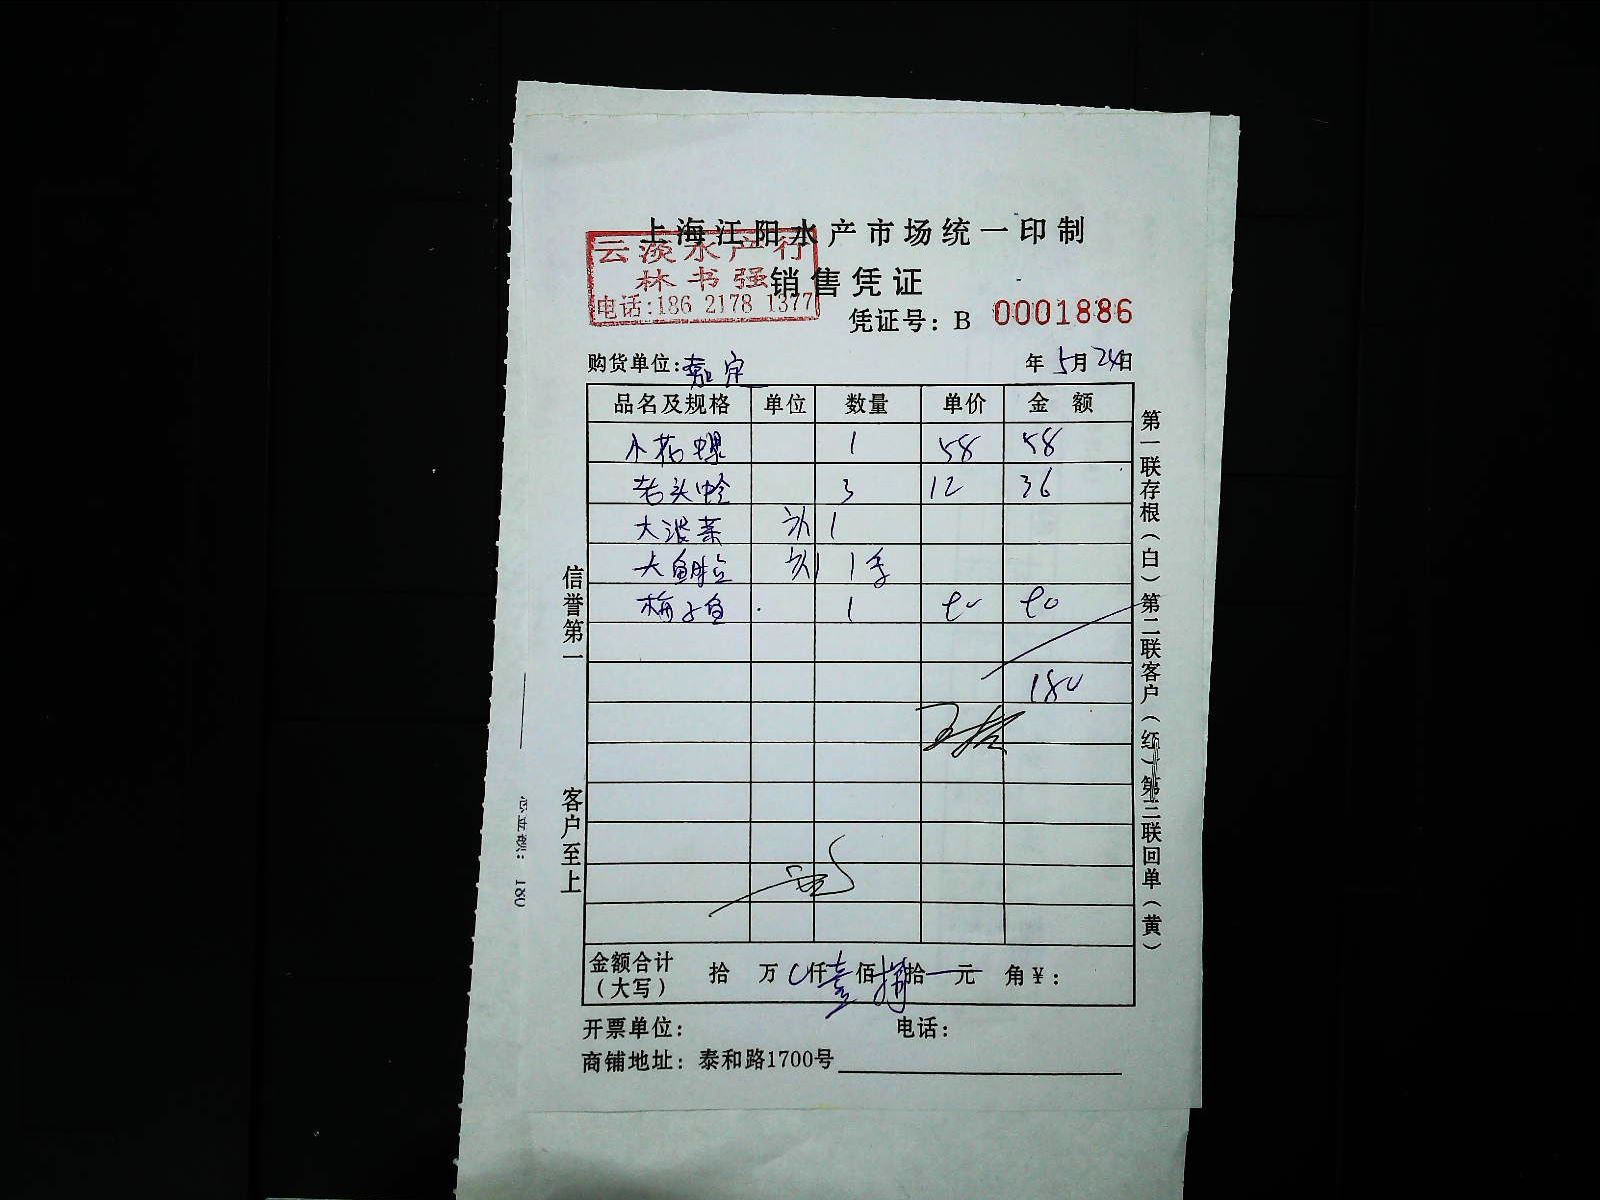 上海江阳水产市场统一印制
云淡水产行
林书强
电话:186 2178 1377
销售凭证
凭证号：B 0001886
购货单位:嘉定 年5月24日
品名及规格 单位 数量 单价 金额
小花螺 1 58 58
老头蛤 3 12 36
大 1
大 1
梅子鱼 1
180
金额合计（大写） 拾 万 仟壹佰捌拾 元 角￥：
开票单位： 电话：
商铺地址：泰和路1700号
信誉第一 客户至上
第一联存根（白）第二联客户（红）第三联回单（黄）
180